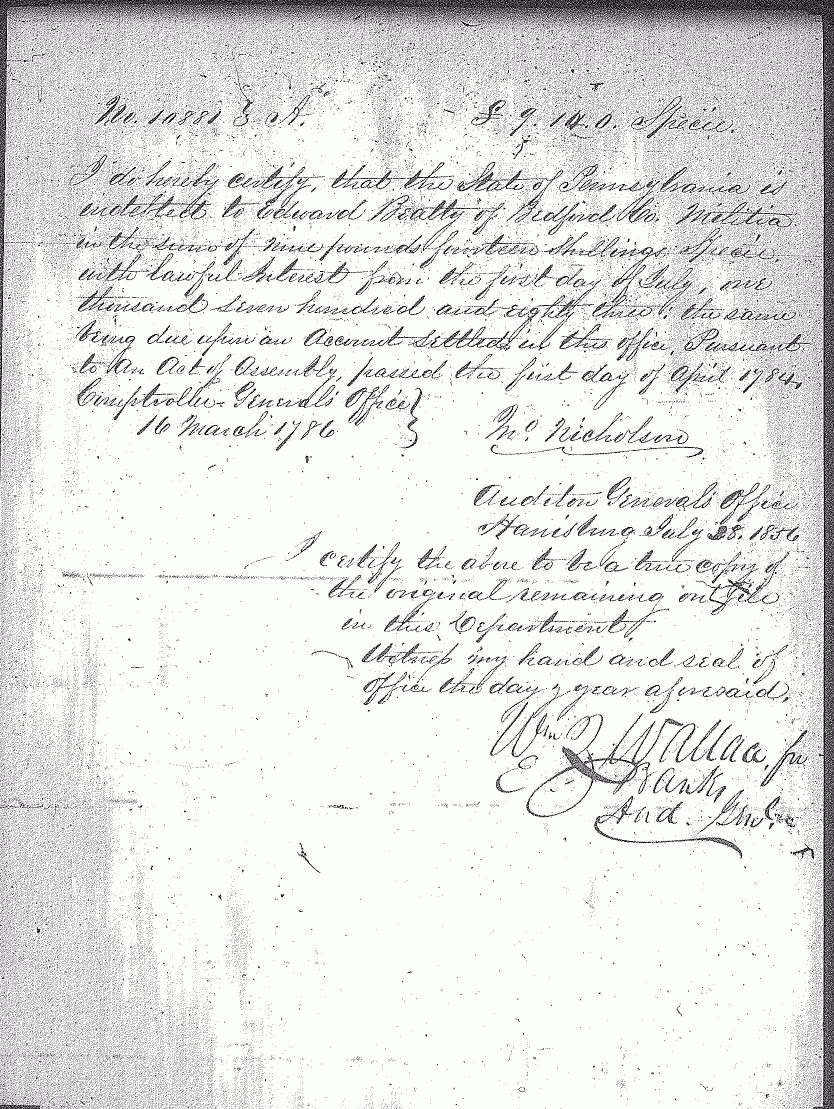 No. 10881 A. £ 9. 14. 0. Specie.
I do hereby certify, that the State of Pennsylvania is
indebted to Edward Beatty of Bedford Co. Melitia
in the sum of nine pounds fourteen shillings Specie,
with lawful Interest from the first day of July, one
thousand seven hundred and eighty three; the same
being due upon an Account settled in this office, Pursuant
to An Act of Assembly, passed the first day of April 1784,
Comptroller-General's Office }
16 March 1786 Jno. Nicholson
Auditor General's Office
Harrisburg July 28. 1856
I certify the above to be a true copy of
the original remaining on file
in this Department,
Witness my hand and seal of
office the day & year aforesaid.
Wm Wallace, for
E Banks,
Aud. Genl.